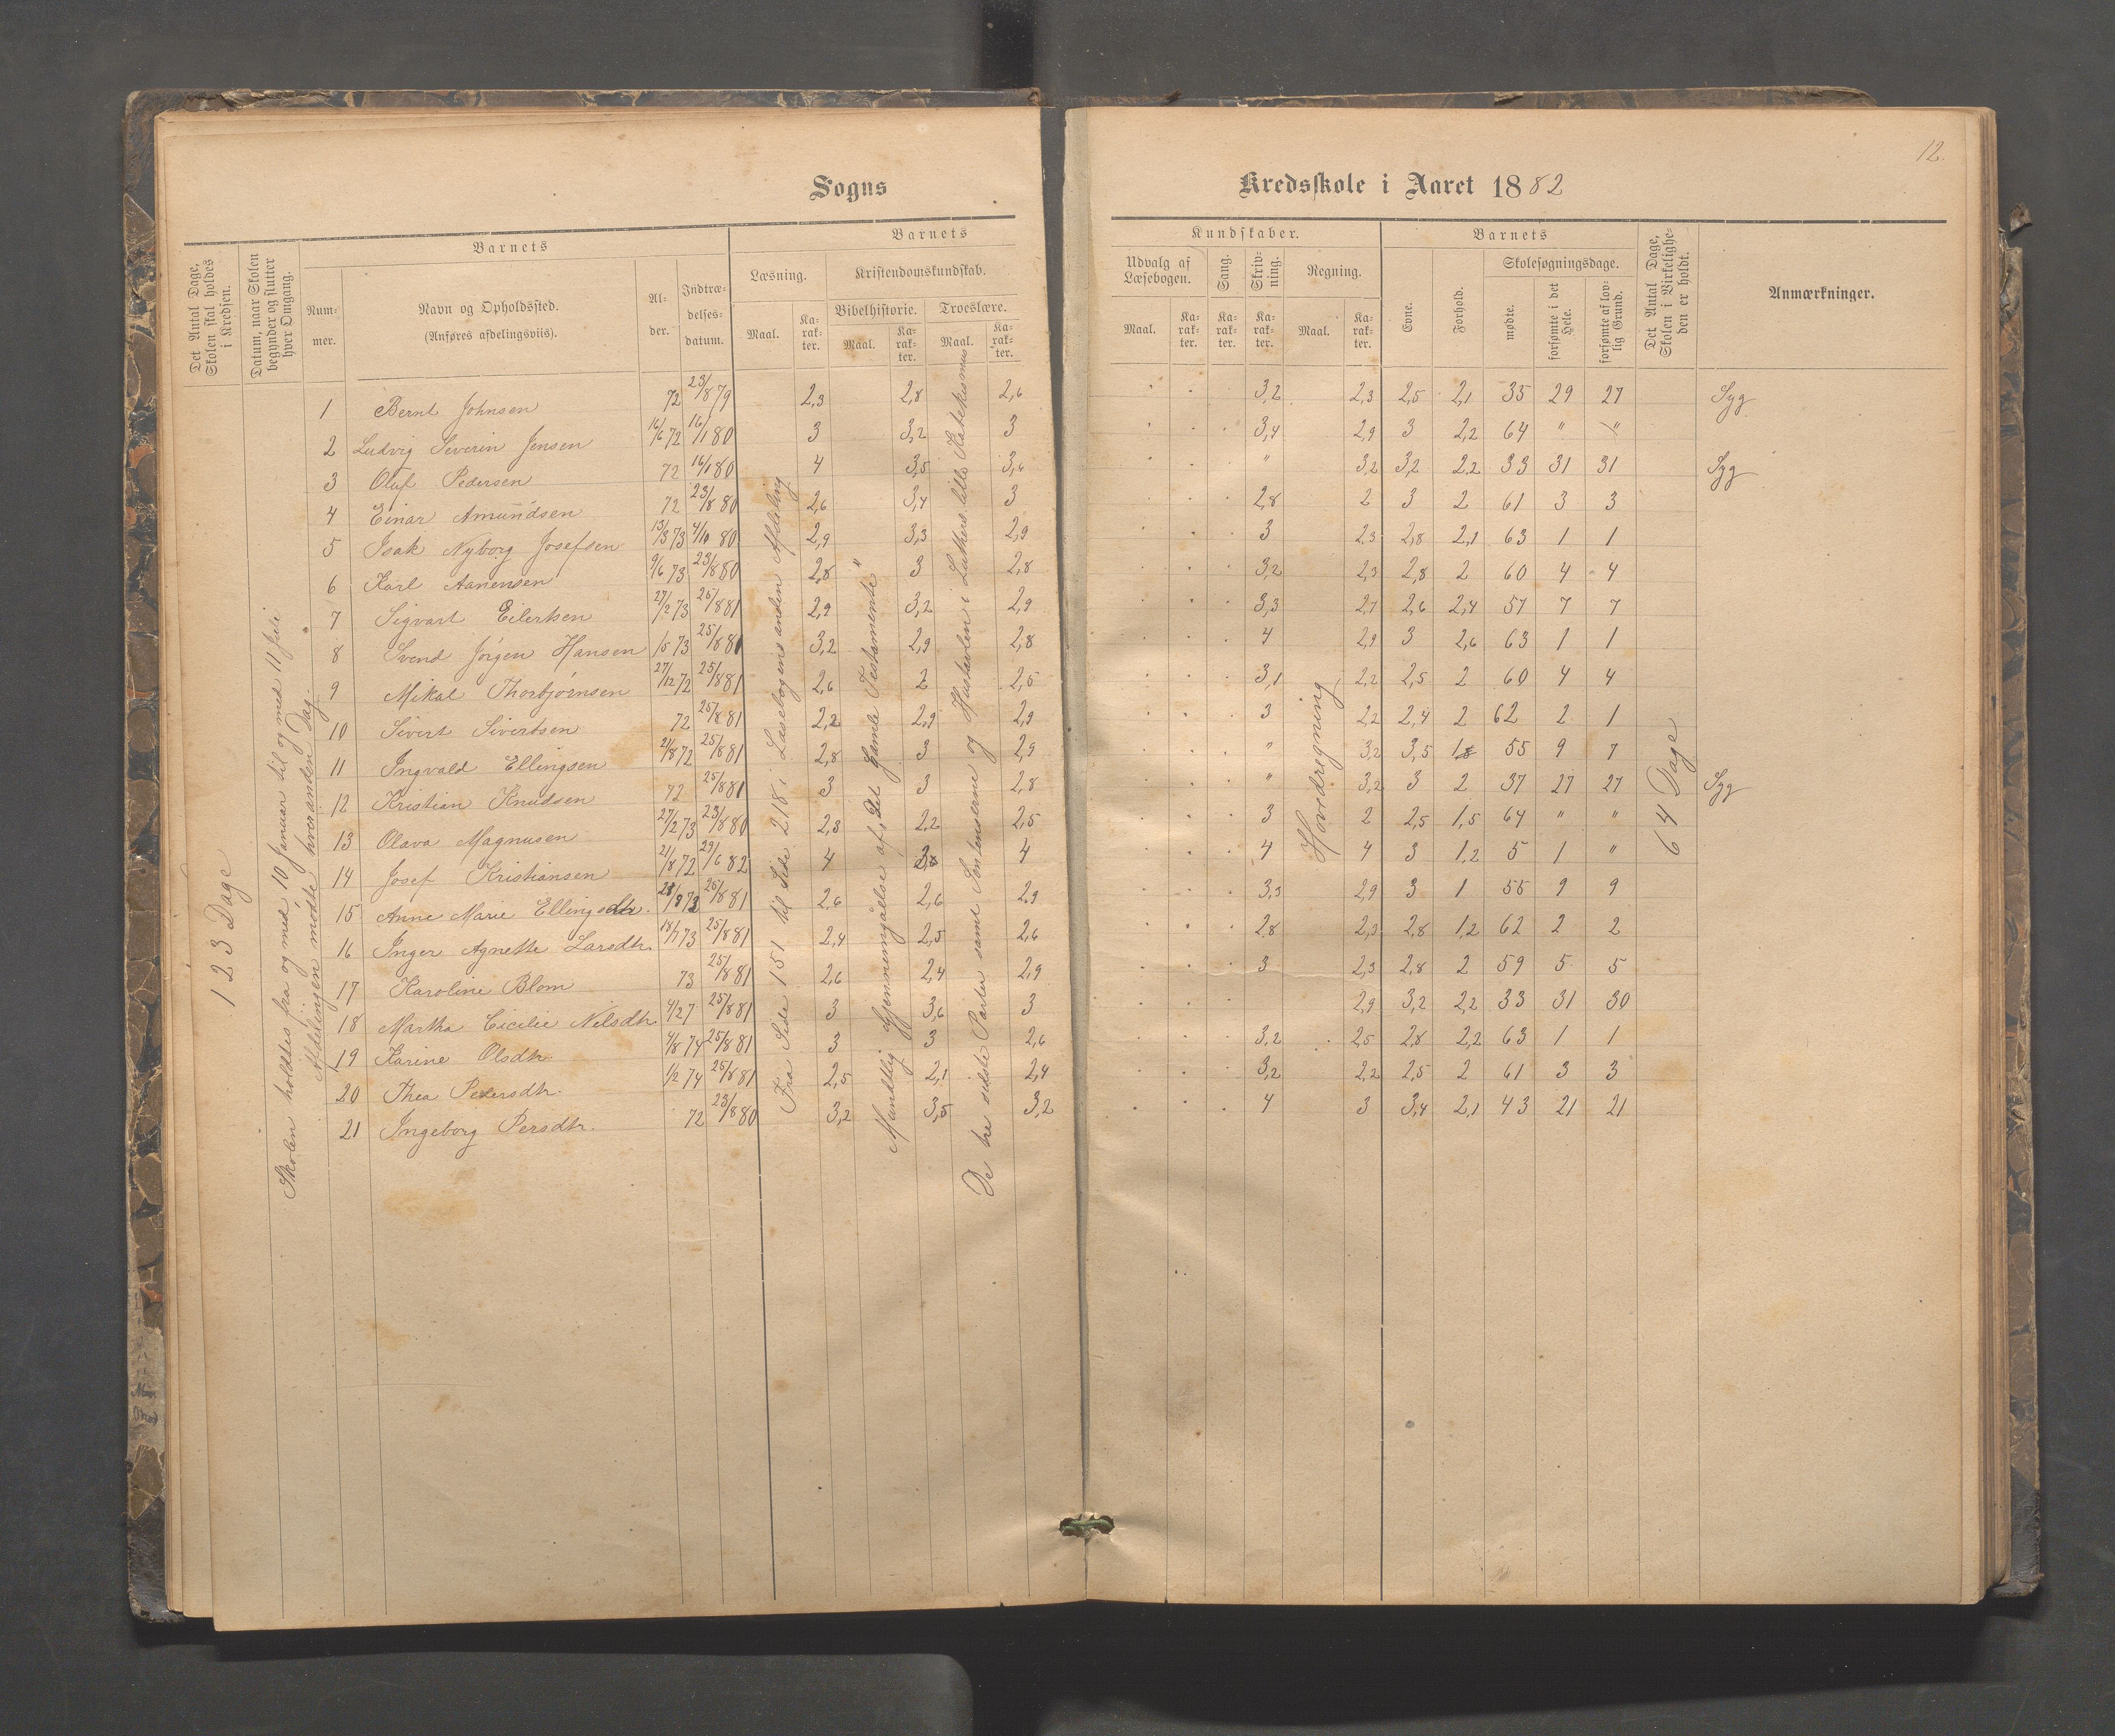 12.
Sogns
Kredsskole i Aaret 1882
Det Antal Dage, Skolen skal holdes i Kredsen.
Datum, naar Skolen begynder og slutter hver Omgang.
Barnets
Num-mer.
Navn og Opholdssted. (Anføres afdelingsviis).
Al-der.
Indtræ-delses-datum.
Barnets
Læsning.
Maal.
Ka-rak-ter.
Kristendomskundskab.
Bibelhistorie.
Maal.
Ka-rak-ter.
Troeslære.
Maal.
Ka-rak-ter.
Kundskaber.
Udvalg af Læsebogen.
Maal.
Ka-rak-ter.
Sang.
Ka-rak-ter.
Skriv-ning.
Ka-rak-ter.
Regning.
Maal.
Ka-rak-ter.
Barnets
Evne.
Forhold.
Skolesøgningsdage.
mødte.
forsømte i det Hele.
forsømte af lov-lig Grund.
Det Antal Dage, Skolen i Virkelighe-den er holdt.
Anmærkninger.
123 Dage
Skolen holdtes fra og med 10 Januar til og med 11 Juli
Afdelingen mødte hveranden Dag.
Fra Side 151 til Side 218 i Læsebogens anden Afdeling
Mundtlig Gjennemgåelse af "Det Gamle Testamente"
De tre sidste Parter samt Sentenserne og Hustavlen i Luthers lille Katekismus
Hovedregning
64 Dage
1 Bernt Johnsen 72 23/8 79 2,3 2,8 2,6 3,2 2,3 2,5 2,1 35 29 27 Syg
2 Ludvig Severin Jensen 16/6 72 16/1 80 3 3,2 3 3,4 2,9 3 2,2 64 " "
3 Oluf Pedersen 72 16/1 80 4 3,5 3,6 " 3,2 3,2 2,2 33 31 31 Syg
4 Einar Amundsen 72 23/8 80 2,6 3,4 3 2,8 2 3 2 61 3 3
5 Isak Nyborg Josefsen 13/3 73 4/10 80 2,9 3,3 2,9 3 2,3 2,8 2,1 63 1 1
6 Karl Aanensen 9/6 73 23/8 80 2,8 3 2,8 3,2 2,3 2,8 2 60 4 4
7 Sigvart Eilertsen 27/2 73 25/8 81 2,9 3,2 2,9 3,3 2,7 2,6 2,4 57 7 7
8 Svend Jörgen Hansen 1/5 73 25/8 81 3,2 2,9 2,8 4 2,9 3 2,6 63 1 1
9 Mikal Thorbjørnsen 27/12 72 25/8 81 2,6 2 2,5 3,1 2,2 2,5 2 60 4 4
10 Sivert Sivertsen 72 25/8 81 2,2 2,9 2,9 3 2,2 2,4 2 62 2 1
11 Ingvald Ellingsen 21/8 72 25/8 81 2,8 3 2,9 " 3,2 3,5 1,8 55 9 7
12 Kristian Knudsen 72 25/8 81 3 3 2,8 " 3,2 3 2 37 27 27 Syg
13 Olava Magnusen 27/2 73 23/8 80 2,3 2,2 2,5 3 2 2,5 1,5 64 " "
14 Josef Kristiansen 21/8 72 29/6 82 4 4 4 4 3 1,2 5 1 "
15 Anne Marie Ellingsdtr. 28/8 73 25/8 81 2,6 2,6 2,9 3,3 2,9 3 1 55 9 9
16 Inger Agnette Larsdtr. 18/1 73 25/8 81 2,4 2,5 2,6 2,8 2,3 2,8 1,2 62 2 2
17 Karoline Blom 73 25/8 81 2,6 2,4 2,9 3 2,3 2,8 2 59 5 5
18 Martha Cicilie Nilsdtr. 4/2 7 25/8 81 3 3,6 3 2,9 3,2 2,2 33 31 30
19 Karine Olsdtr. 9/8 74 25/8 81 3 3 2,6 3,2 2,5 2,8 2,2 63 1 1
20 Thea Pedersdtr. 1/2 74 25/8 81 2,5 2,1 2,4 3,2 2,2 2,5 2 61 3 3
21 Ingeborg Persdtr. 72 23/8 80 3,2 3,5 3,2 4 3 3,4 2,1 43 21 21